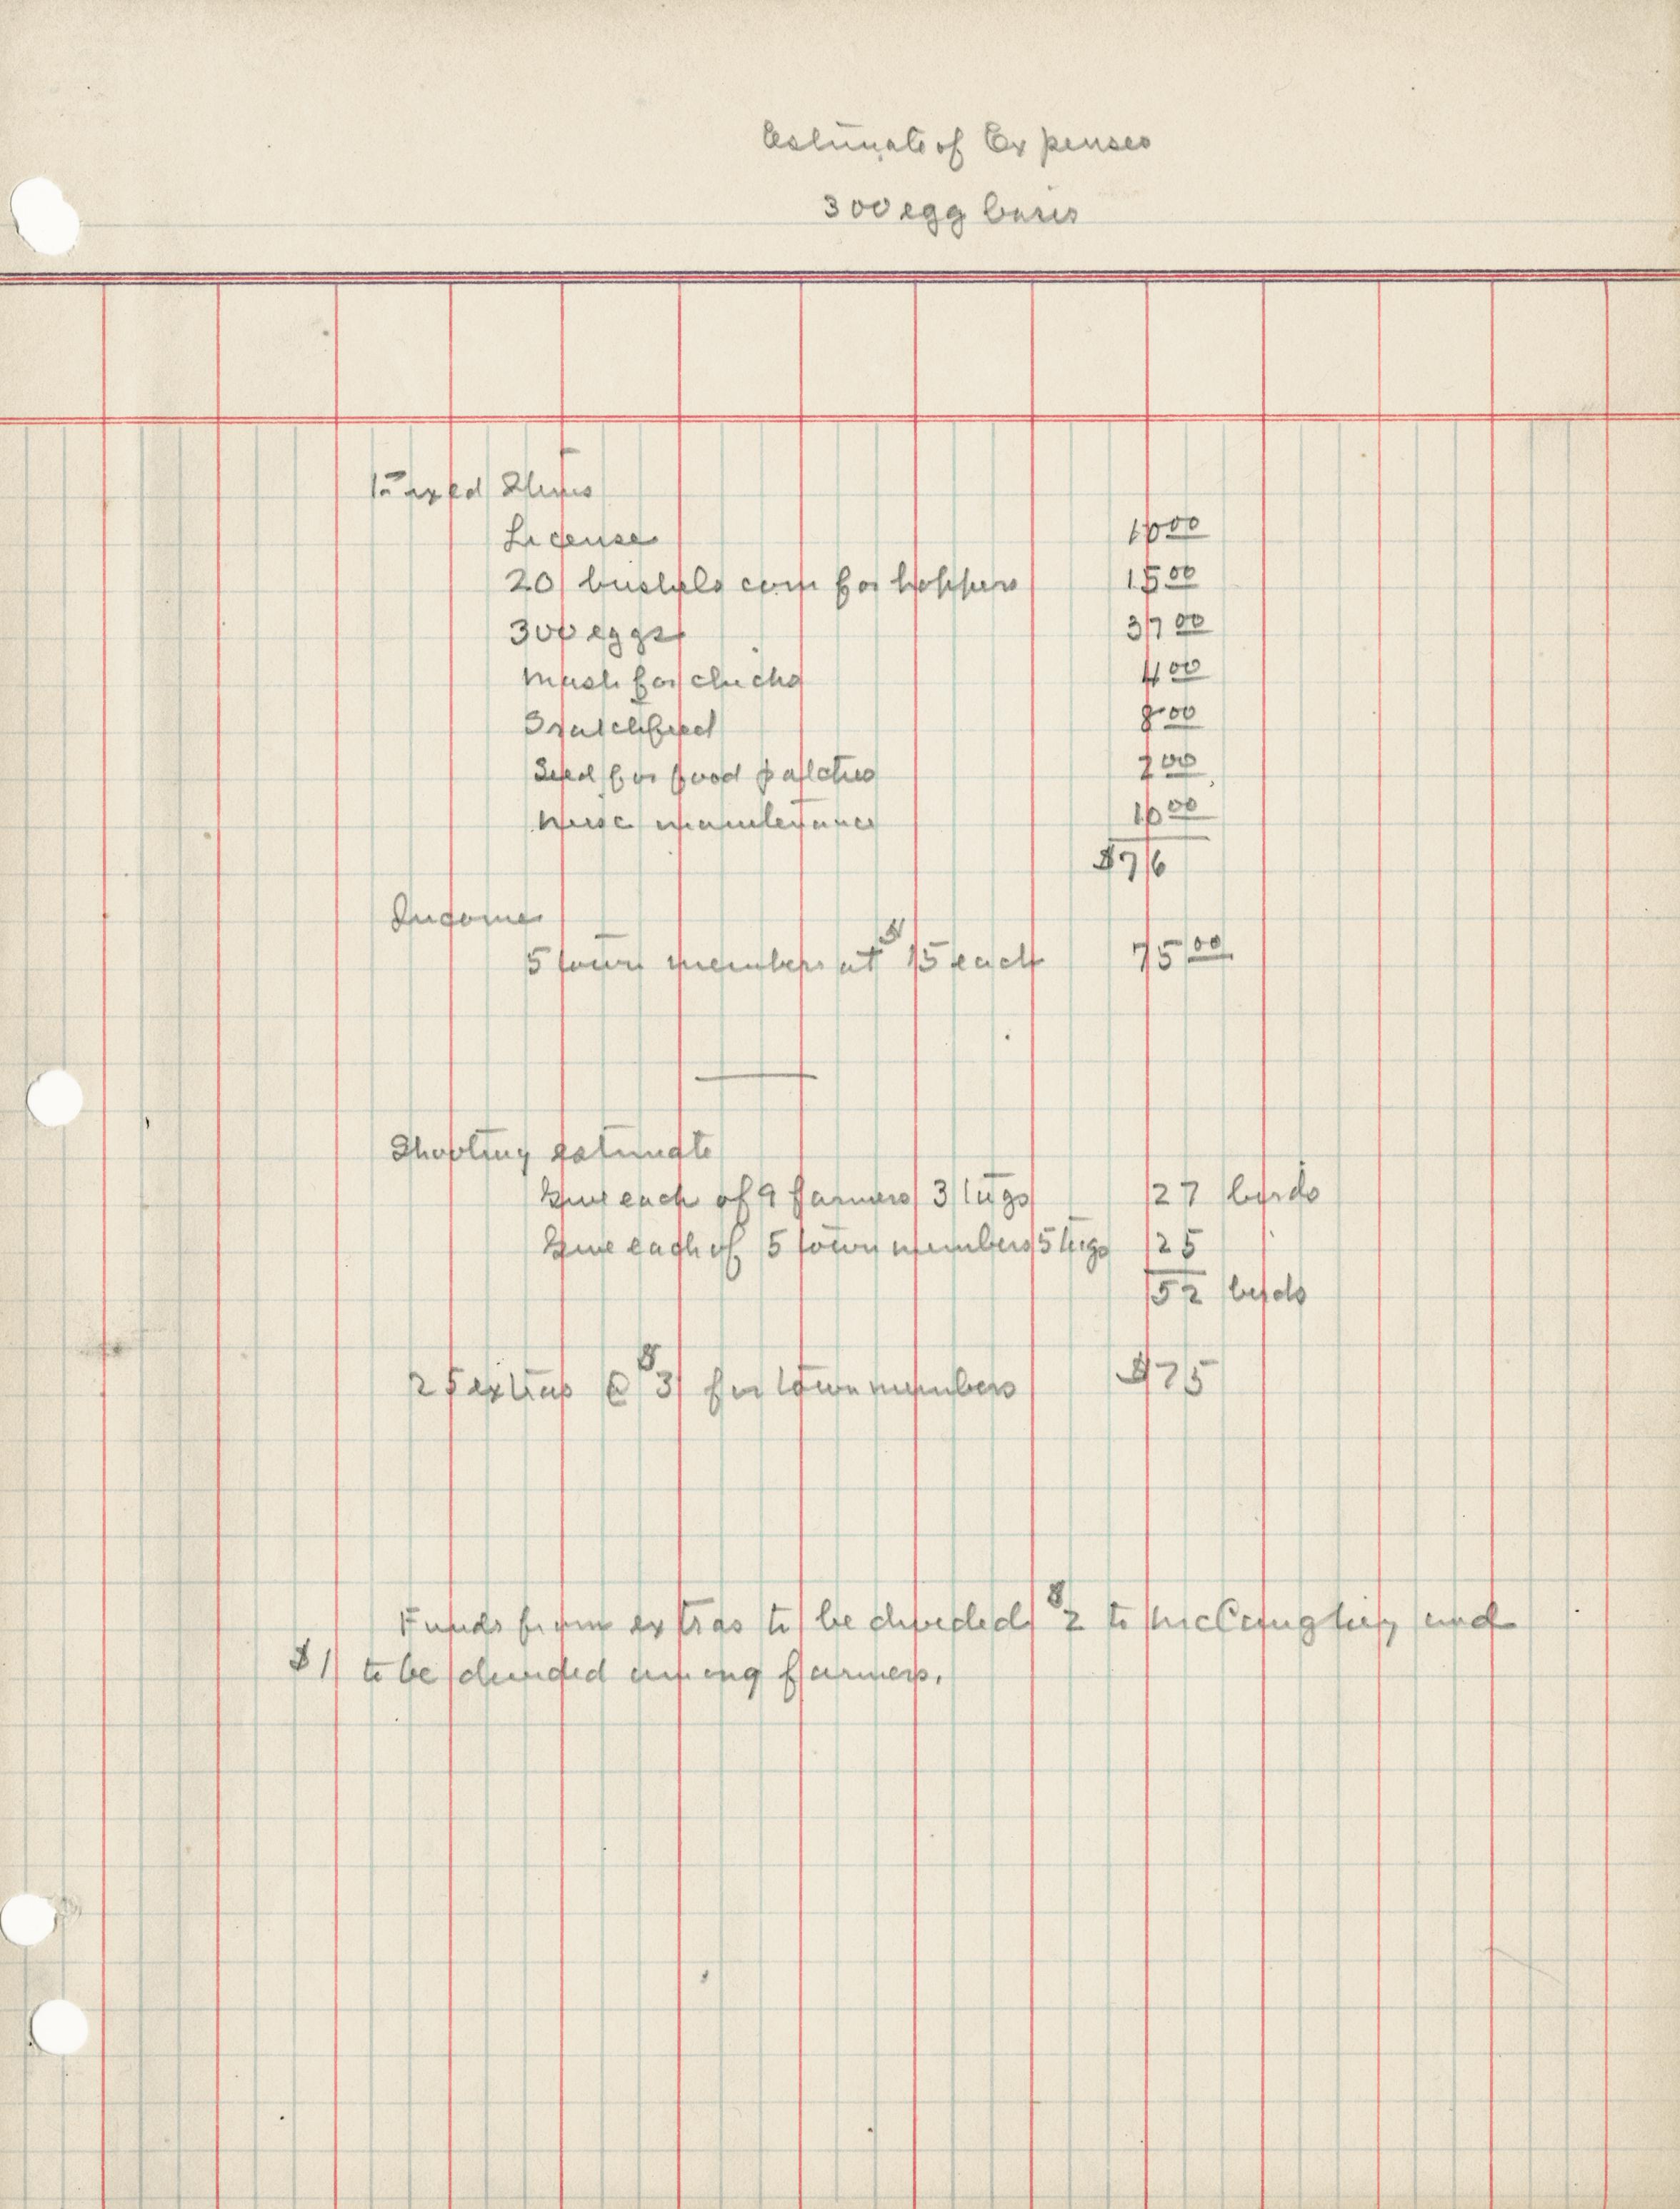 Estimate of Expenses
300 egg basis
Fixed Items
License 10 00
20 bushels corn for hoppers 15 00
300 eggs 37 00
Mash for chicks 4 00
Scratchfeed 8 00
Seed for food patches 2 00
Misc maintenance 10 00
$76
Income
5 town members at $15 each 75 00
Shooting estimate
Give each of 9 farmers 3 tags 27 birds
Give each of 5 town members 5 tags 25
52 birds
25 extras @ $3 for town members $75
Funds from extras to be divided $2 to McCaughey and
$1 to be divided among farmers.